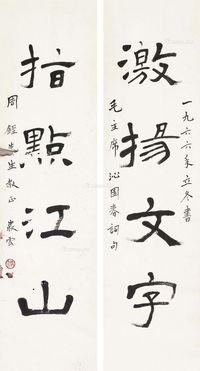 一九六六年立冬書
激揚文字
毛主席沁園春詞句
指點江山
周先生教正